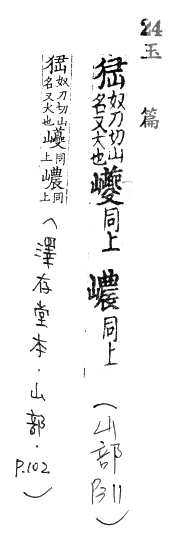 24
玉篇
峱奴刀切山名又犬也巎同上嶩同上(山部P311)
峱奴刀切山名又犬也巎同上嶩同上(澤存堂本·山部·P.102)